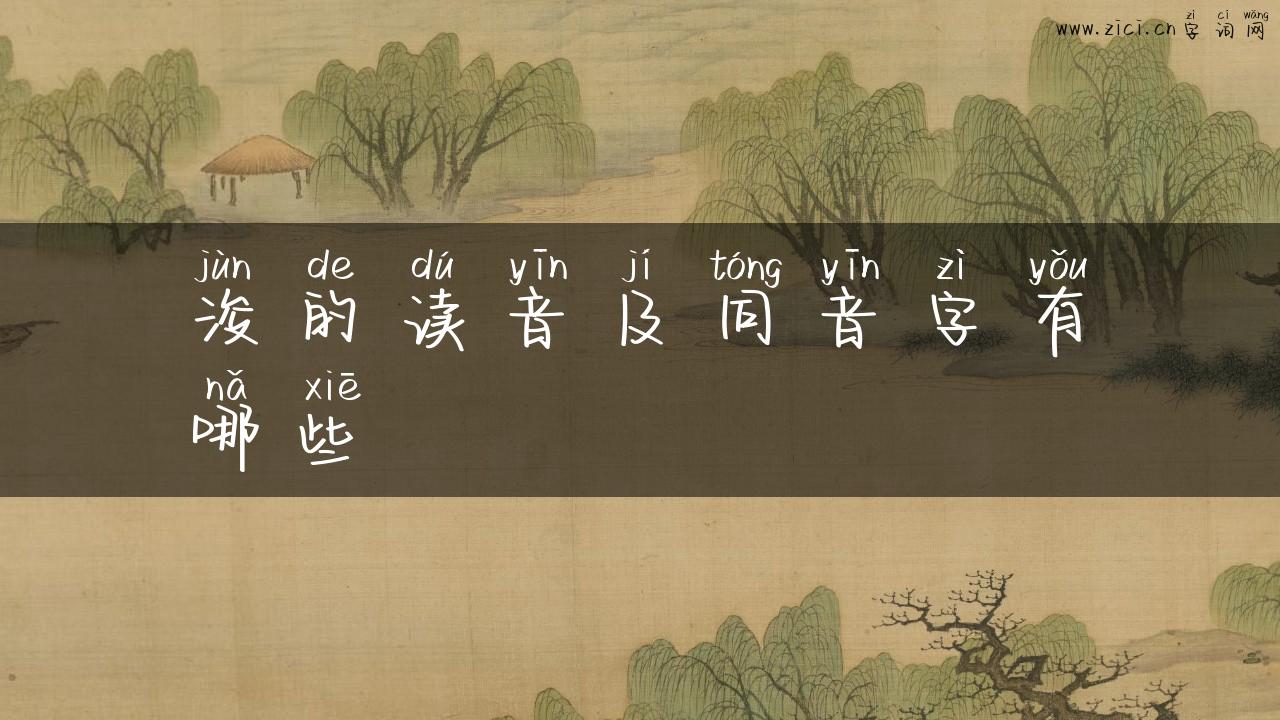 zì cí wǎng
www.zici.cn 字 词 网
jùn de dú yīn jí tóng yīn zì yǒu
浚 的 读 音 及 同 音 字 有
nǎ xiē
哪 些